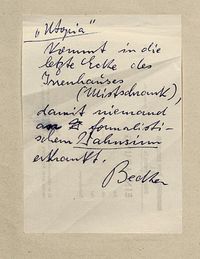 „Utopia"
Kommt in die
letzte Ecke des
Irrenhauses
(Mistschrank),
damit niemand
an formalisti-
schem Wahnsinn
erkrankt.
Becker